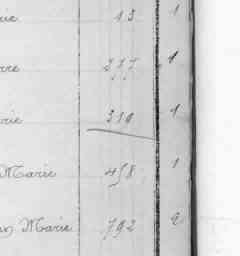 rie 13 1
rre 277 1
rie 319 1
Marie 458 1
Marie 792 2